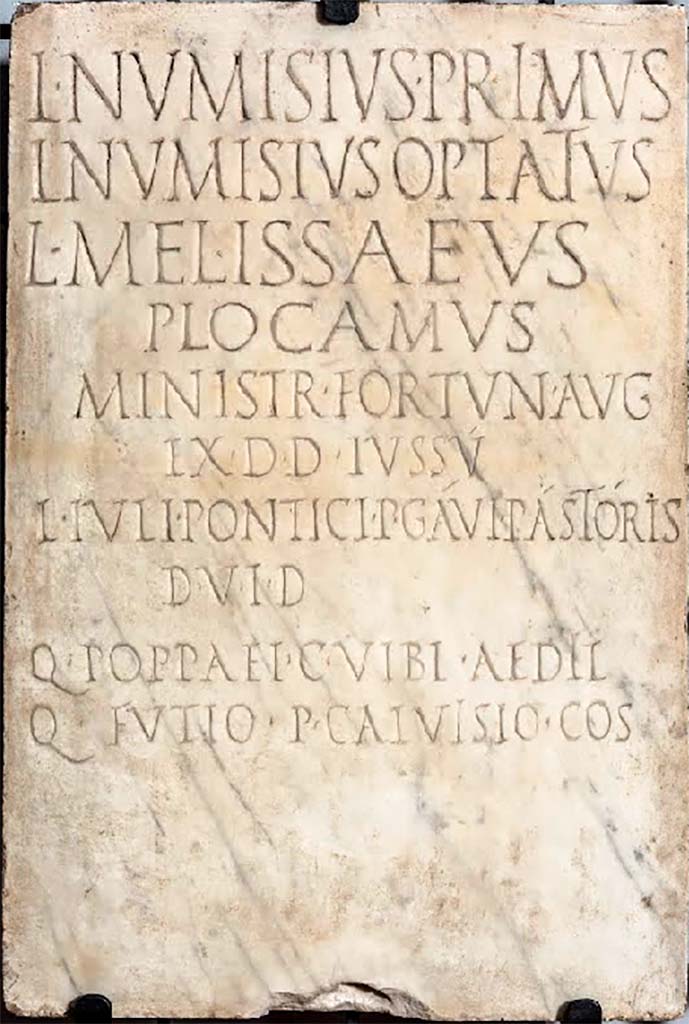 L·NVMISIVS·PRIMVS
L·NVMISIVS OPTATVS
L·MELISSAEVS
PLOCAMVS
MINISTR·FORTVN·AVG
EX·D·D·IVSSV́
L·IVLI·PONTICI·P·GÁVI·PÁSTÓRIS
D·V·I·D
Q·POPPAEI·C·VIBI·AEDIL
Q·FVTIO·P·CALVISIO·COS